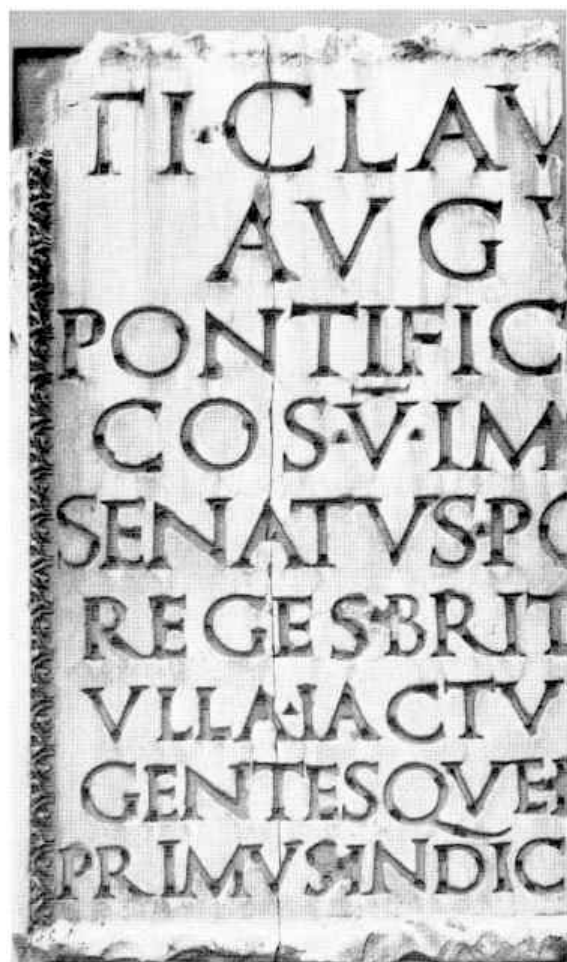 TI·CLAV
AVG
PONTIFIC
COS·V·IM
SENATVS·PO
REGES·BRIT
VLLA·IACTV
GENTESQVE
PRIMVS·INDIC